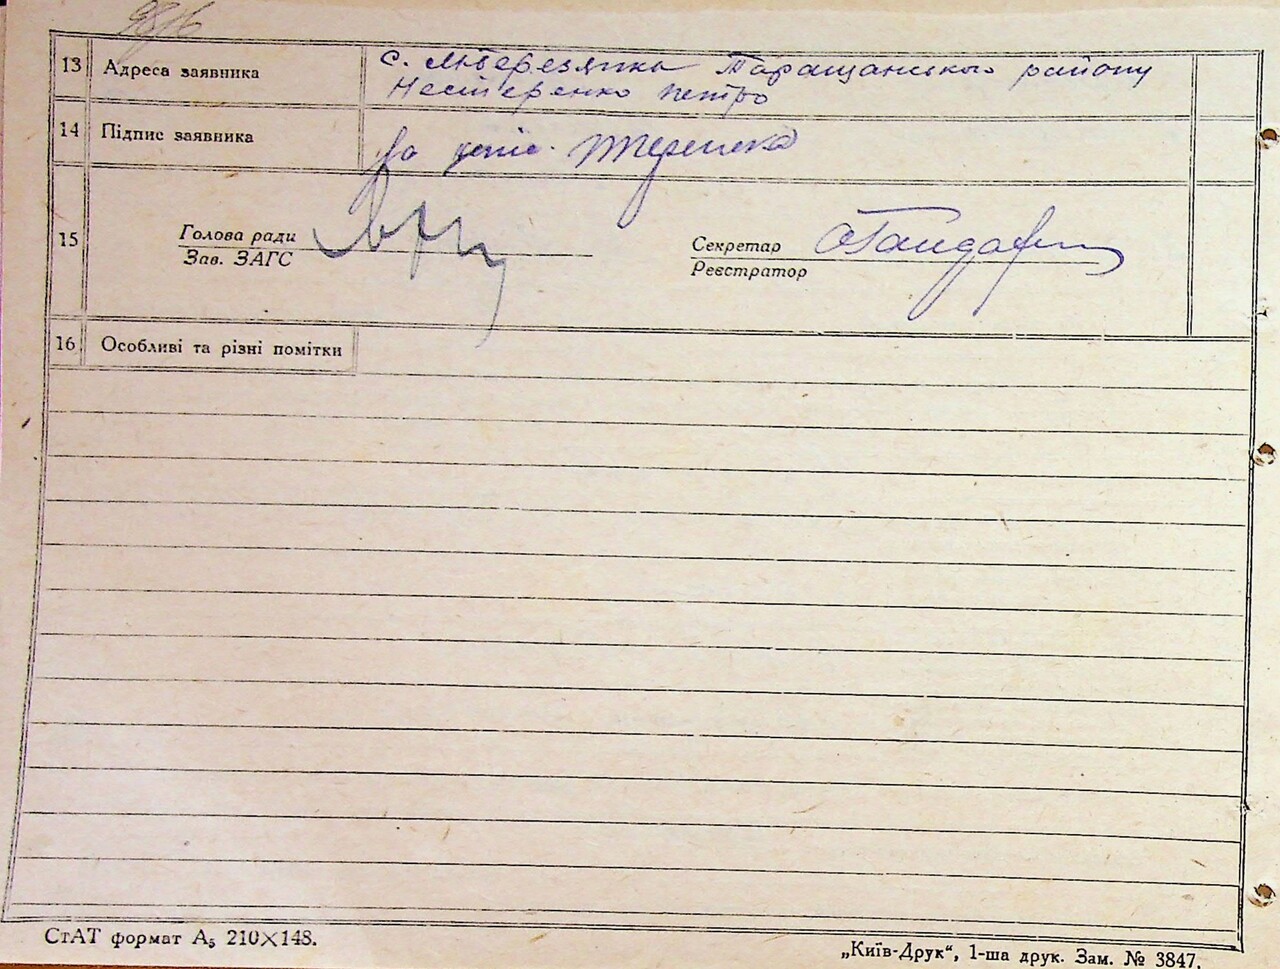 13 Адреса заявника с. Лютерезянка Таращанського району
Нестеренко Петро
14 Підпис заявника
15 Голова ради
Зав. ЗАГС
Секретар
Реєстратор
16 Особливі та різні помітки
СтАТ формат А₅ 210×148.
„Київ-Друк“, 1-ша друк. Зам. № 3847.